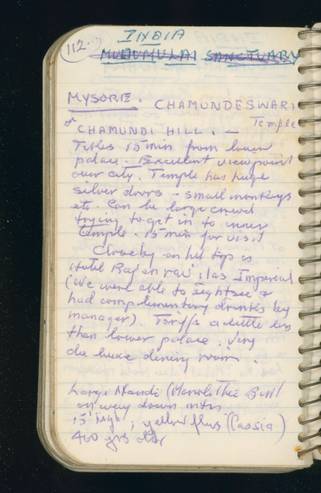 112.
INDIA
MUDUMULAI SANCTUARY
MYSORE. CHAMUNDESWARI
Temple
CHAMUNDI HILL. —
15 min from lower
palace. Excellent viewpoint
over city. Temple has huge
silver doors - small monkeys
etc. Can be large crowd
trying to get in to inner
temple. 15 min for visit
Close by on hill top is
Hotel
(We were able to sightsee &
had complimentary drinks by
manager). Tariffs a little less
than lower palace. Very
de luxe dining room.
Large Nandi (Monolithic Bull
on way down mtn.
15' high, yellow flws (Cassia)
400 yrs old,